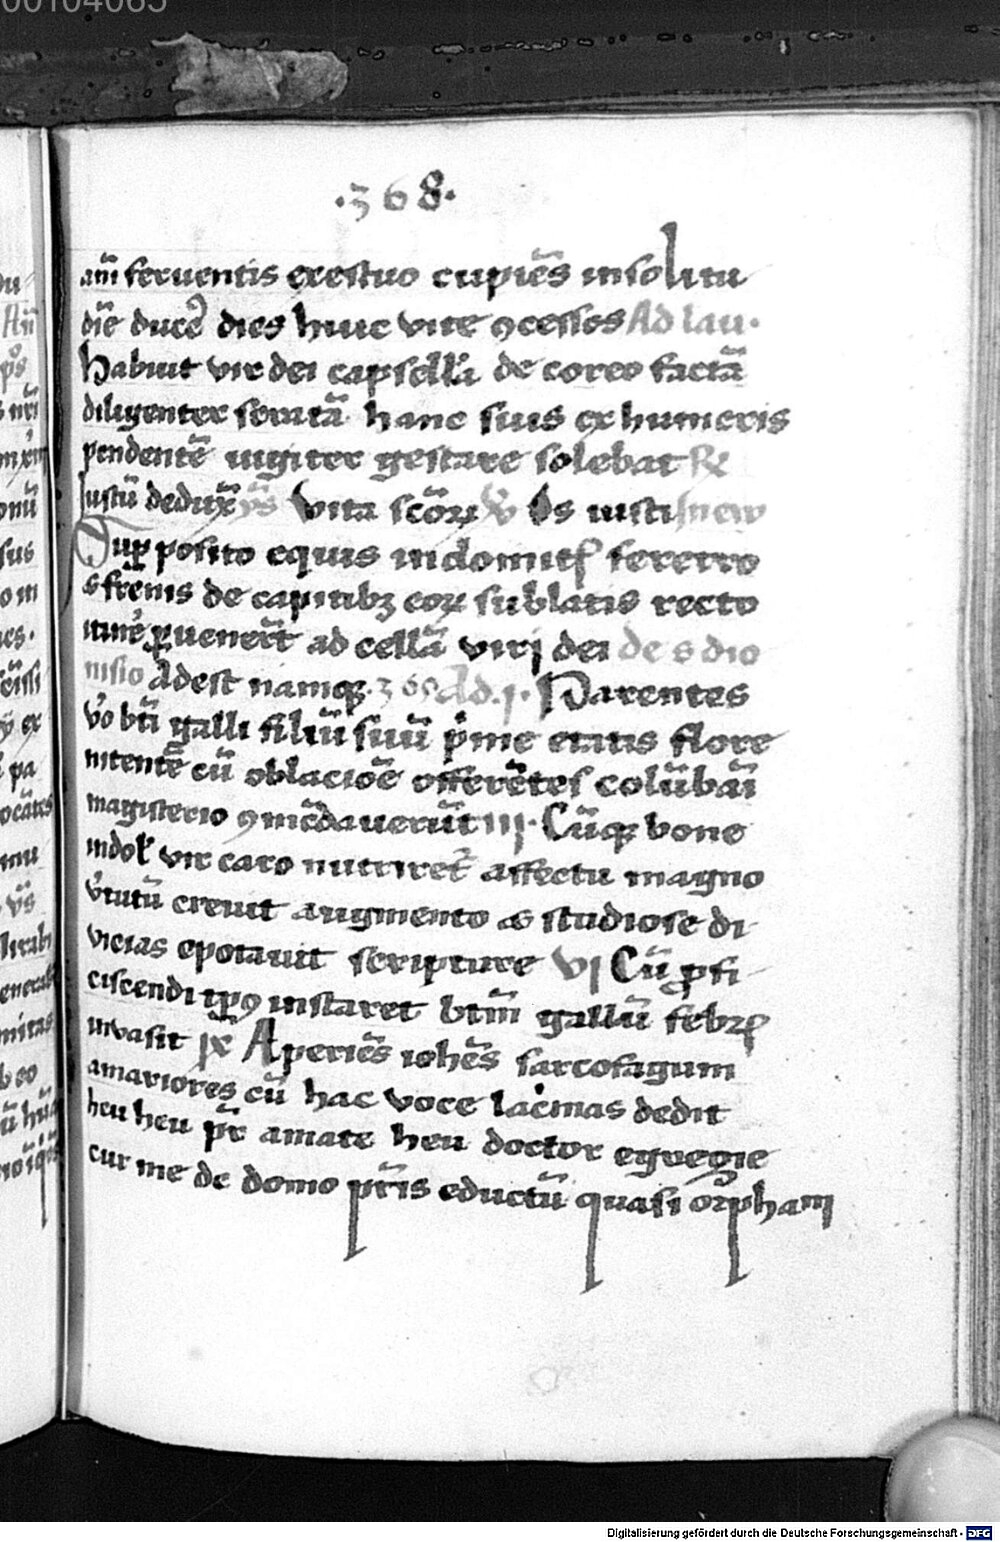 00104065
·368·
am̄ feruentis exestuo cupiēs insolitu
diē ducẽ dies huic vite ꝯcessos Ad lau·
Habuit vir dei capsellā de coreo factā
diligenter seratā hanc suus ex humeris
pendentē iugiter gestare solebat ℟
Justū deduxͭ Vita scōꝝ ℣ Os iusti
Suꝑposito equis indomitꝭ feretro
& frenis de capitibꝫ eoꝝ sublatis recto
itinē ꝑuenerūt ad cellā viri dei de s dio
nisio Adest namqꝫ 368 Ad .j. Parentes
v̓o bt̄i galli filiū suū p̓me etatis flore
nitentē cū oblacioē offerētes colūbāi
magisterio ꝯmēdauerūt iij· Cūqꝫ bone
indol̓ vir caro nutriret̄ affectu magno
v̓tutū creuit augmento & studiose di
vicias epotauit scripture vj Cū ꝓfi
ciscendi tp̄ꝯ instaret bt̄m gallū febrꝭ
inuasit ix Aperiēs iohēs sarcofagum
amariores cū hac voce lac̓mas dedit
heu heu pr̄ amate heu doctor egregie
cur me de domo pr̄is eductū quasi orpham
Digitalisierung gefördert durch die Deutsche Forschungsgemeinschaft - DFG